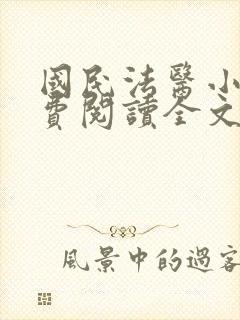 國民法醫小
費閱讀全文
風景中的過客